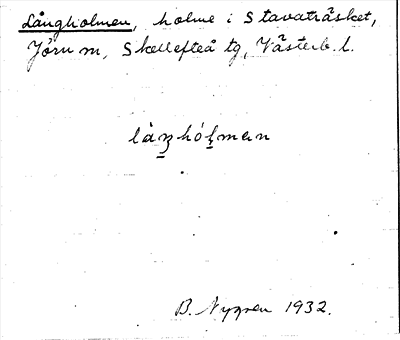 Långholmen, holme i Stavaträsket,
Jörn m, Skellefteå tg, Västerb. l.
làŋhólmɐn
B. Nygren 1932.